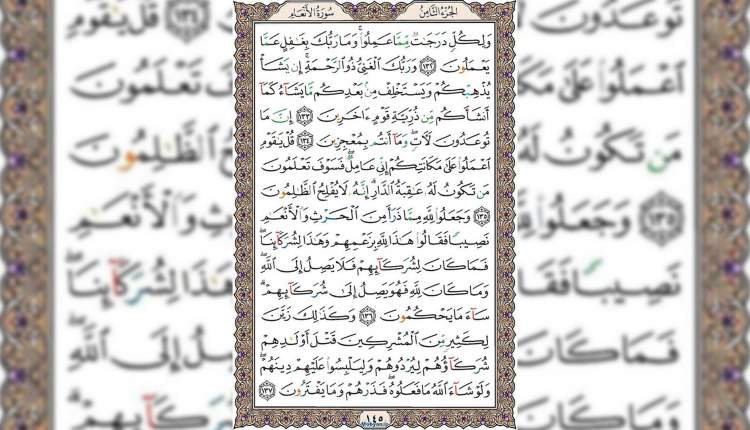 الجزء الثامن
سورة الأنعام
وَلِكُلٍّ دَرَجَٰتٌ مِّمَّا عَمِلُوا۟ ۚ وَمَا رَبُّكَ بِغَٰفِلٍ عَمَّا
يَعْمَلُونَ ١٣٢ وَرَبُّكَ ٱلْغَنِىُّ ذُو ٱلرَّحْمَةِ ۚ إِن يَشَأْ
يُذْهِبْكُمْ وَيَسْتَخْلِفْ مِنۢ بَعْدِكُم مَّا يَشَآءُ كَمَآ
أَنشَأَكُم مِّن ذُرِّيَّةِ قَوْمٍ ءَاخَرِينَ ١٣٣ إِنَّ مَا
تُوعَدُونَ لَءَاتٍ ۖ وَمَآ أَنتُم بِمُعْجِزِينَ ١٣٤ قُلْ يَٰقَوْمِ
ٱعْمَلُوا۟ عَلَىٰ مَكَانَتِكُمْ إِنِّى عَامِلٌ ۖ فَسَوْفَ تَعْلَمُونَ
مَن تَكُونُ لَهُۥ عَٰقِبَةُ ٱلدَّارِ ۗ إِنَّهُۥ لَا يُفْلِحُ ٱلظَّٰلِمُونَ
١٣٥ وَجَعَلُوا۟ لِلَّهِ مِمَّا ذَرَأَ مِنَ ٱلْحَرْثِ وَٱلْأَنْعَٰمِ
نَصِيبًا فَقَالُوا۟ هَٰذَا لِلَّهِ بِزَعْمِهِمْ وَهَٰذَا لِشُرَكَآئِنَا ۖ
فَمَا كَانَ لِشُرَكَآئِهِمْ فَلَا يَصِلُ إِلَى ٱللَّهِ ۖ
وَمَا كَانَ لِلَّهِ فَهُوَ يَصِلُ إِلَىٰ شُرَكَآئِهِمْ ۗ
سَآءَ مَا يَحْكُمُونَ ١٣٦ وَكَذَٰلِكَ زَيَّنَ
لِكَثِيرٍ مِّنَ ٱلْمُشْرِكِينَ قَتْلَ أَوْلَٰدِهِمْ
شُرَكَآؤُهُمْ لِيُرْدُوهُمْ وَلِيَلْبِسُوا۟ عَلَيْهِمْ دِينَهُمْ ۖ
وَلَوْ شَآءَ ٱللَّهُ مَا فَعَلُوهُ ۖ فَذَرْهُمْ وَمَا يَفْتَرُونَ ١٣٧
١٤٥